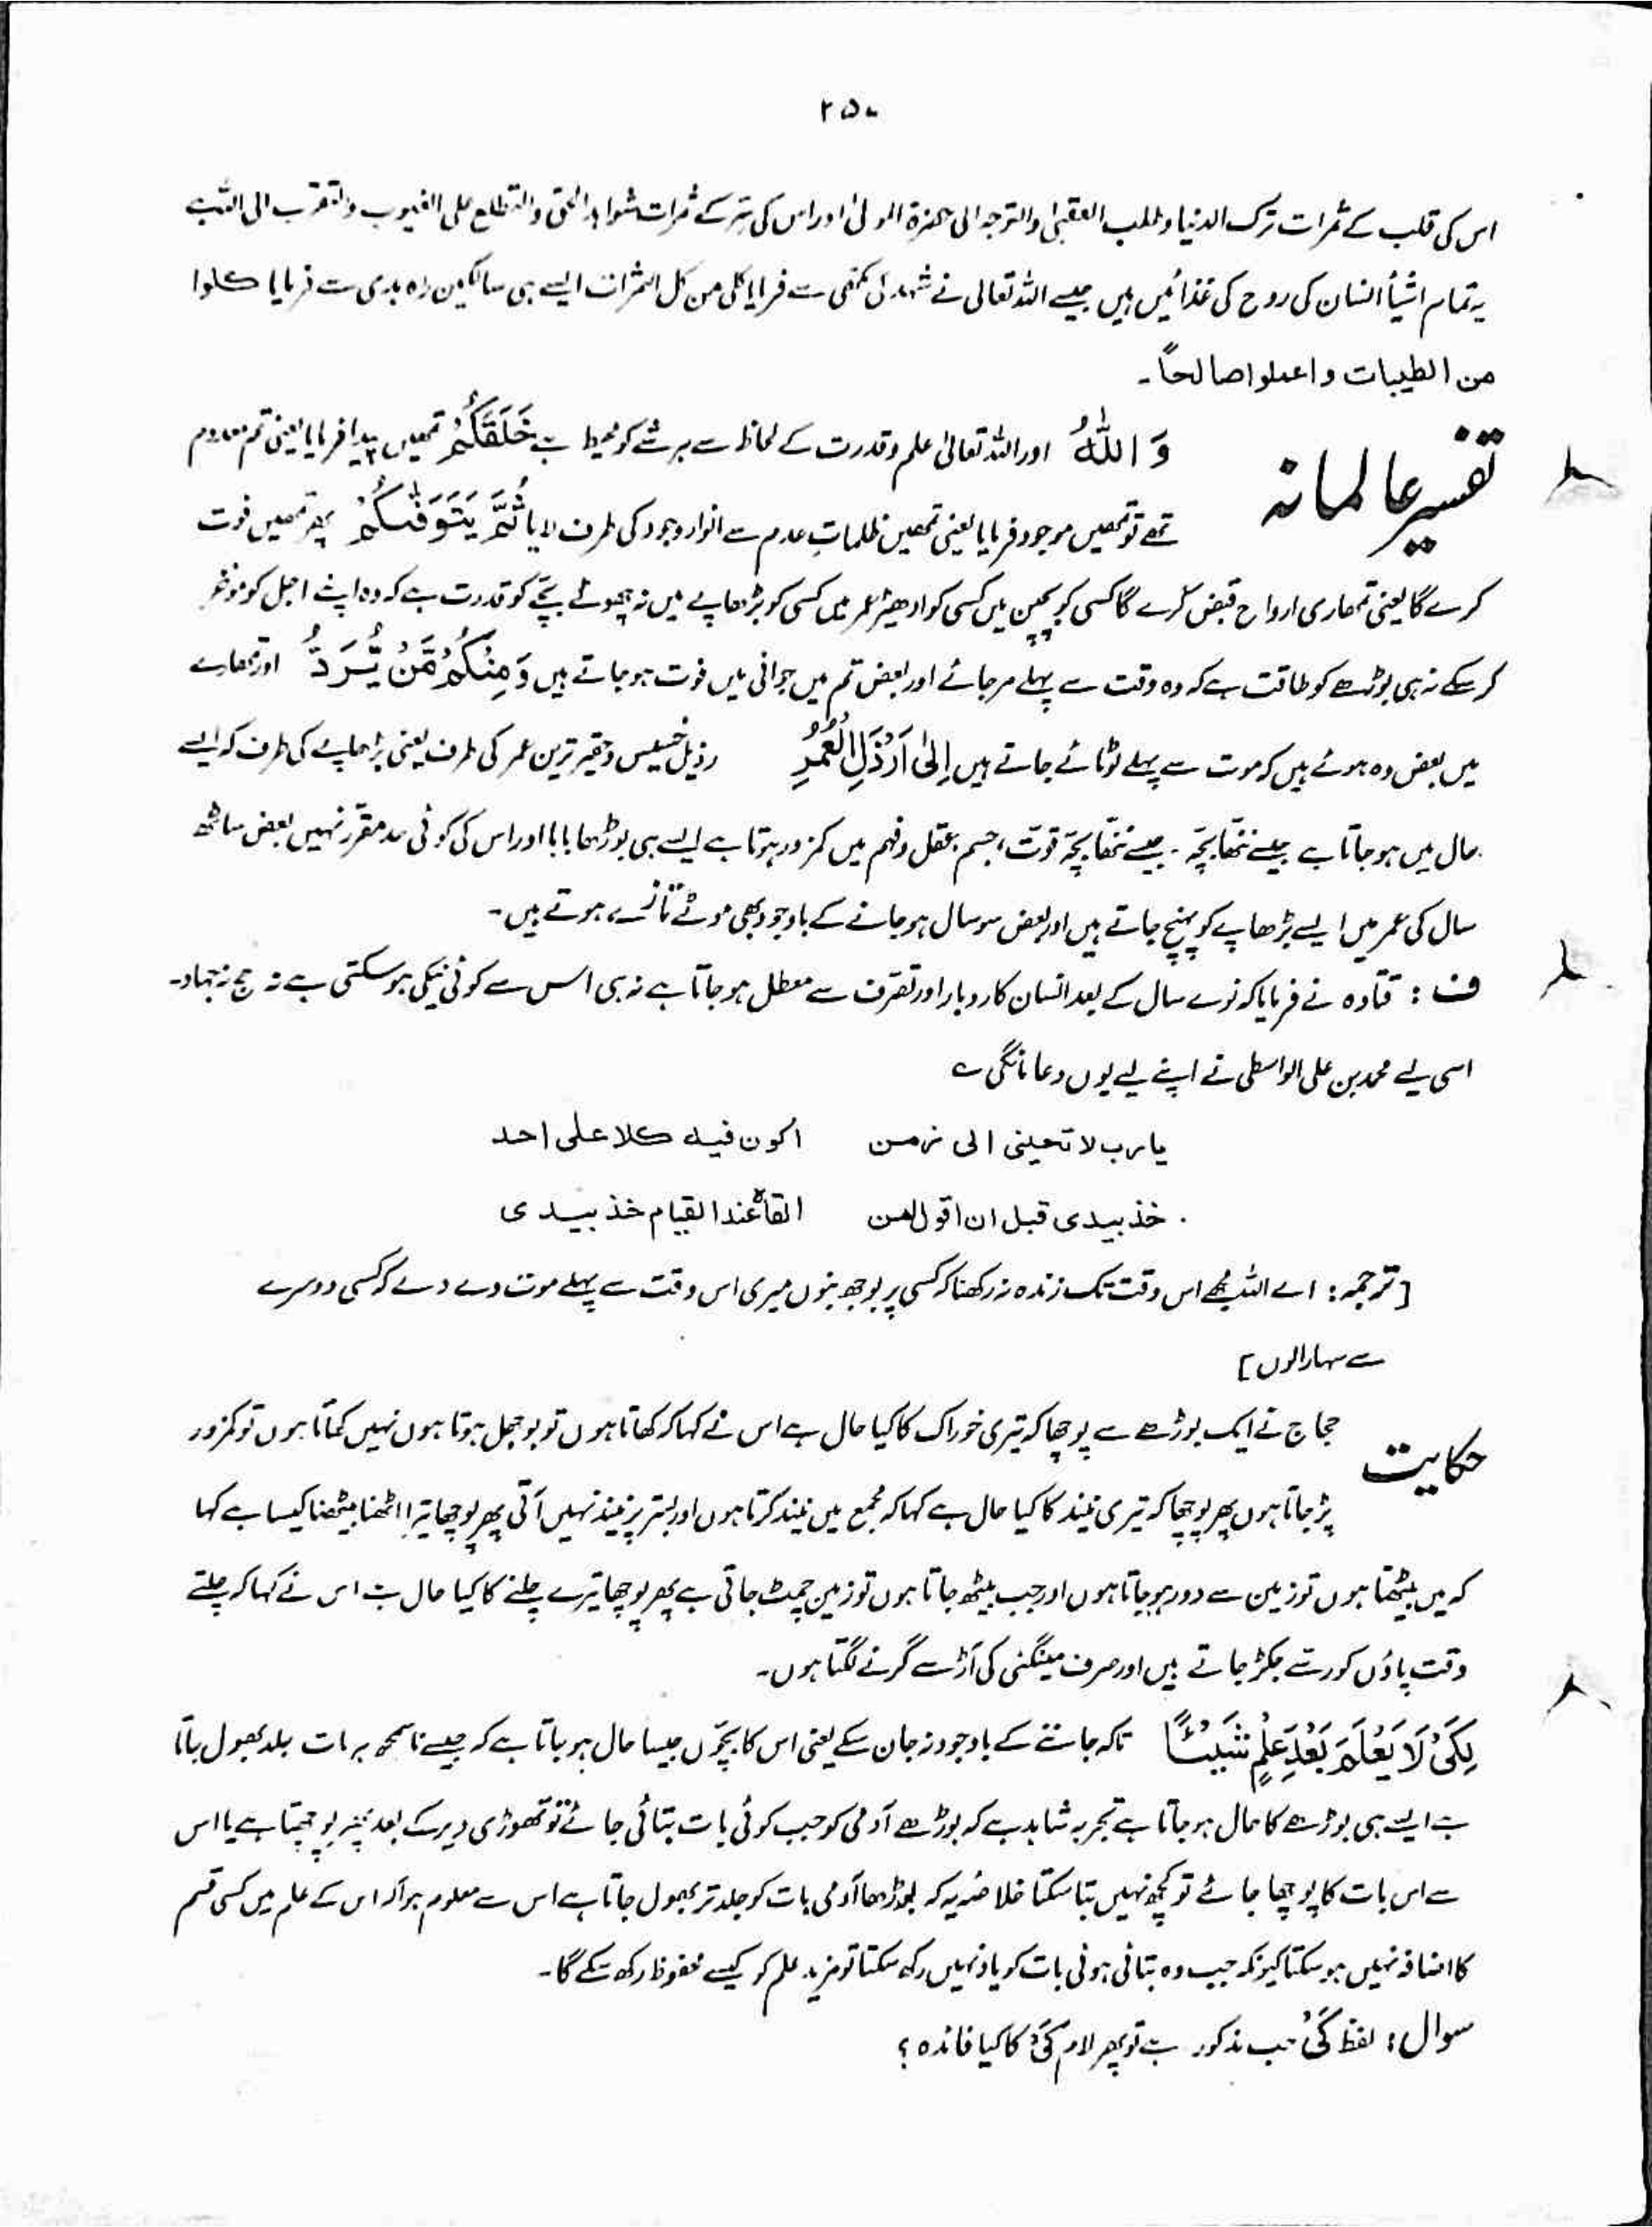 ۲۵۰
اس کی قلب کے ثمرات ترک الدنیا و طلب العقبیٰ والتوجہ الی حضرۃ المولیٰ اور اس کی سِر کے ثمرات شواہد الحق والتطلع علی الغیوب والتقرب الی اللہ ہے
یہ تمام اشیأ انسان کی روح کی غذائیں ہیں جیسے اللہ تعالیٰ نے شہد کی مکھی سے فرمایا کلی من کل الثمرات ایسے ہی سالکین راہ ہدی سے فرمایا کلوا
من الطیبات واعملوا صالحاً۔
تفسیر عالمانہ
وَاللّٰہُ اور اللہ تعالیٰ علم و قدرت کے لحاظ سے ہر شے کو محیط ہے خَلَقَکُمْ تمھیں پیدا فرمایا یعنی تم معدوم
تھے تو تمھیں موجود فرمایا یعنی تمھیں ظلماتِ عدم سے انوار وجود کی طرف لایا ثُمَّ یَتَوَفّٰکُمْ پھر تمھیں فوت
کرے گا یعنی تمھاری ارواح قبض کرے گا کسی کو بچپن میں کسی کو ادھیڑ عمر میں کسی کو بڑھاپے میں نہ چھوٹے بچّے کو قدرت ہے کہ وہ اپنے اجل کو مؤخر
کر سکے نہ ہی بوڑھے کو طاقت ہے کہ وہ وقت سے پہلے مرجائے اور بعض تم میں جوانی میں فوت ہوجاتے ہیں وَمِنْکُمْ مَّنْ یُّرَدُّ اور تمھارے
میں بعض وہ ہوئے ہیں کہ موت سے پہلے لوٹائے جاتے ہیں اِلٰیٓ اَرْذَلِ الْعُمُرِ رذیل خسیس و حقیر ترین عمر کی طرف یعنی بڑھاپے کی طرف کہ ایسے
حال میں ہوجاتا ہے جیسے ننھّا بچّہ۔ جیسے ننھّا بچّہ قوّت، جسم، عقل و فہم میں کمزور ہوتا ہے ایسے ہی بوڑھا بابا اور اس کی کوئی حد مقرر نہیں بعض ساٹھ
سال کی عمر میں ایسے بڑھاپے کو پہنچ جاتے ہیں اور بعض سو سال ہوجانے کے باوجود بھی موٹے تازے ہوتے ہیں۔
ف : قتادہ نے فرمایا کہ نوے سال کے بعد انسان کاروبار اور تصرف سے معطل ہوجاتا ہے نہ ہی اس سے کوئی نیکی ہوسکتی ہے نہ حج نہ جہاد۔
اسی لیے محمد بن علی الواسطی نے اپنے لیے یوں دعا مانگی ؎
یارب لا تحیینی الی زمن اکون فیہ کلا علی احد
خذ بیدی قبل ان اقول لمن القاہ عند القیام خذ بیدی
[ ترجمہ : اے اللہ مجھے اس وقت تک زندہ نہ رکھنا کہ کسی پر بوجھ بنوں میری اس وقت سے پہلے موت دے دے کہ کسی دوسرے
سے سہارا لوں ]
حکایت
حجاج نے ایک بوڑھے سے پوچھا کہ تیری خوراک کا کیا حال ہے اس نے کہا کہ کھاتا ہوں تو بوجھل ہوتا ہوں نہیں کھاتا ہوں تو کمزور
پڑجاتا ہوں پھر پوچھا کہ تیری نیند کا کیا حال ہے کہا کہ مجمع میں نیند کرتا ہوں اور بستر پر نیند نہیں آتی پھر پوچھا تیرا اٹھنا بیٹھنا کیسا ہے کہا
کہ میں بیٹھتا ہوں تو زمین سے دور ہوجاتا ہوں اور جب بیٹھ جاتا ہوں تو زمین چمٹ جاتی ہے پھر پوچھا تیرے چلنے کا کیا حال ہے اس نے کہا کہ چلتے
وقت پاؤں کو رسّے جکڑ جاتے ہیں اور صرف مینگنی کی آڑ سے گرنے لگتا ہوں۔
لِکَیْ لَا یَعْلَمَ بَعْدَ عِلْمٍ شَیْئًا تاکہ جاننے کے باوجود نہ جان سکے یعنی اس کا بچّوں جیسا حال ہوجاتا ہے کہ جیسے ناسمجھ ہر بات جلد بھول جاتا
ہے ایسے ہی بوڑھے کا حال ہوجاتا ہے تجربہ شاہد ہے کہ بوڑھے آدمی کو جب کوئی بات بتائی جائے تو تھوڑی دیر کے بعد پھر پوچھتا ہے یا اس
سے اس بات کا پوچھا جائے تو کچھ نہیں بتا سکتا خلاصہ یہ کہ بوڑھا آدمی بات کو جلد تر بھول جاتا ہے اس سے معلوم ہوا کہ اس کے علم میں کسی قسم
کا اضافہ نہیں ہوسکتا کیونکہ جب وہ بتائی ہوئی بات کو یاد نہیں رکھ سکتا تو مزید علم کو کیسے محفوظ رکھ سکے گا۔
سوال : لفظ کَیْ جب مذکور ہے تو پھر لام کَیْ کا کیا فائدہ ؟